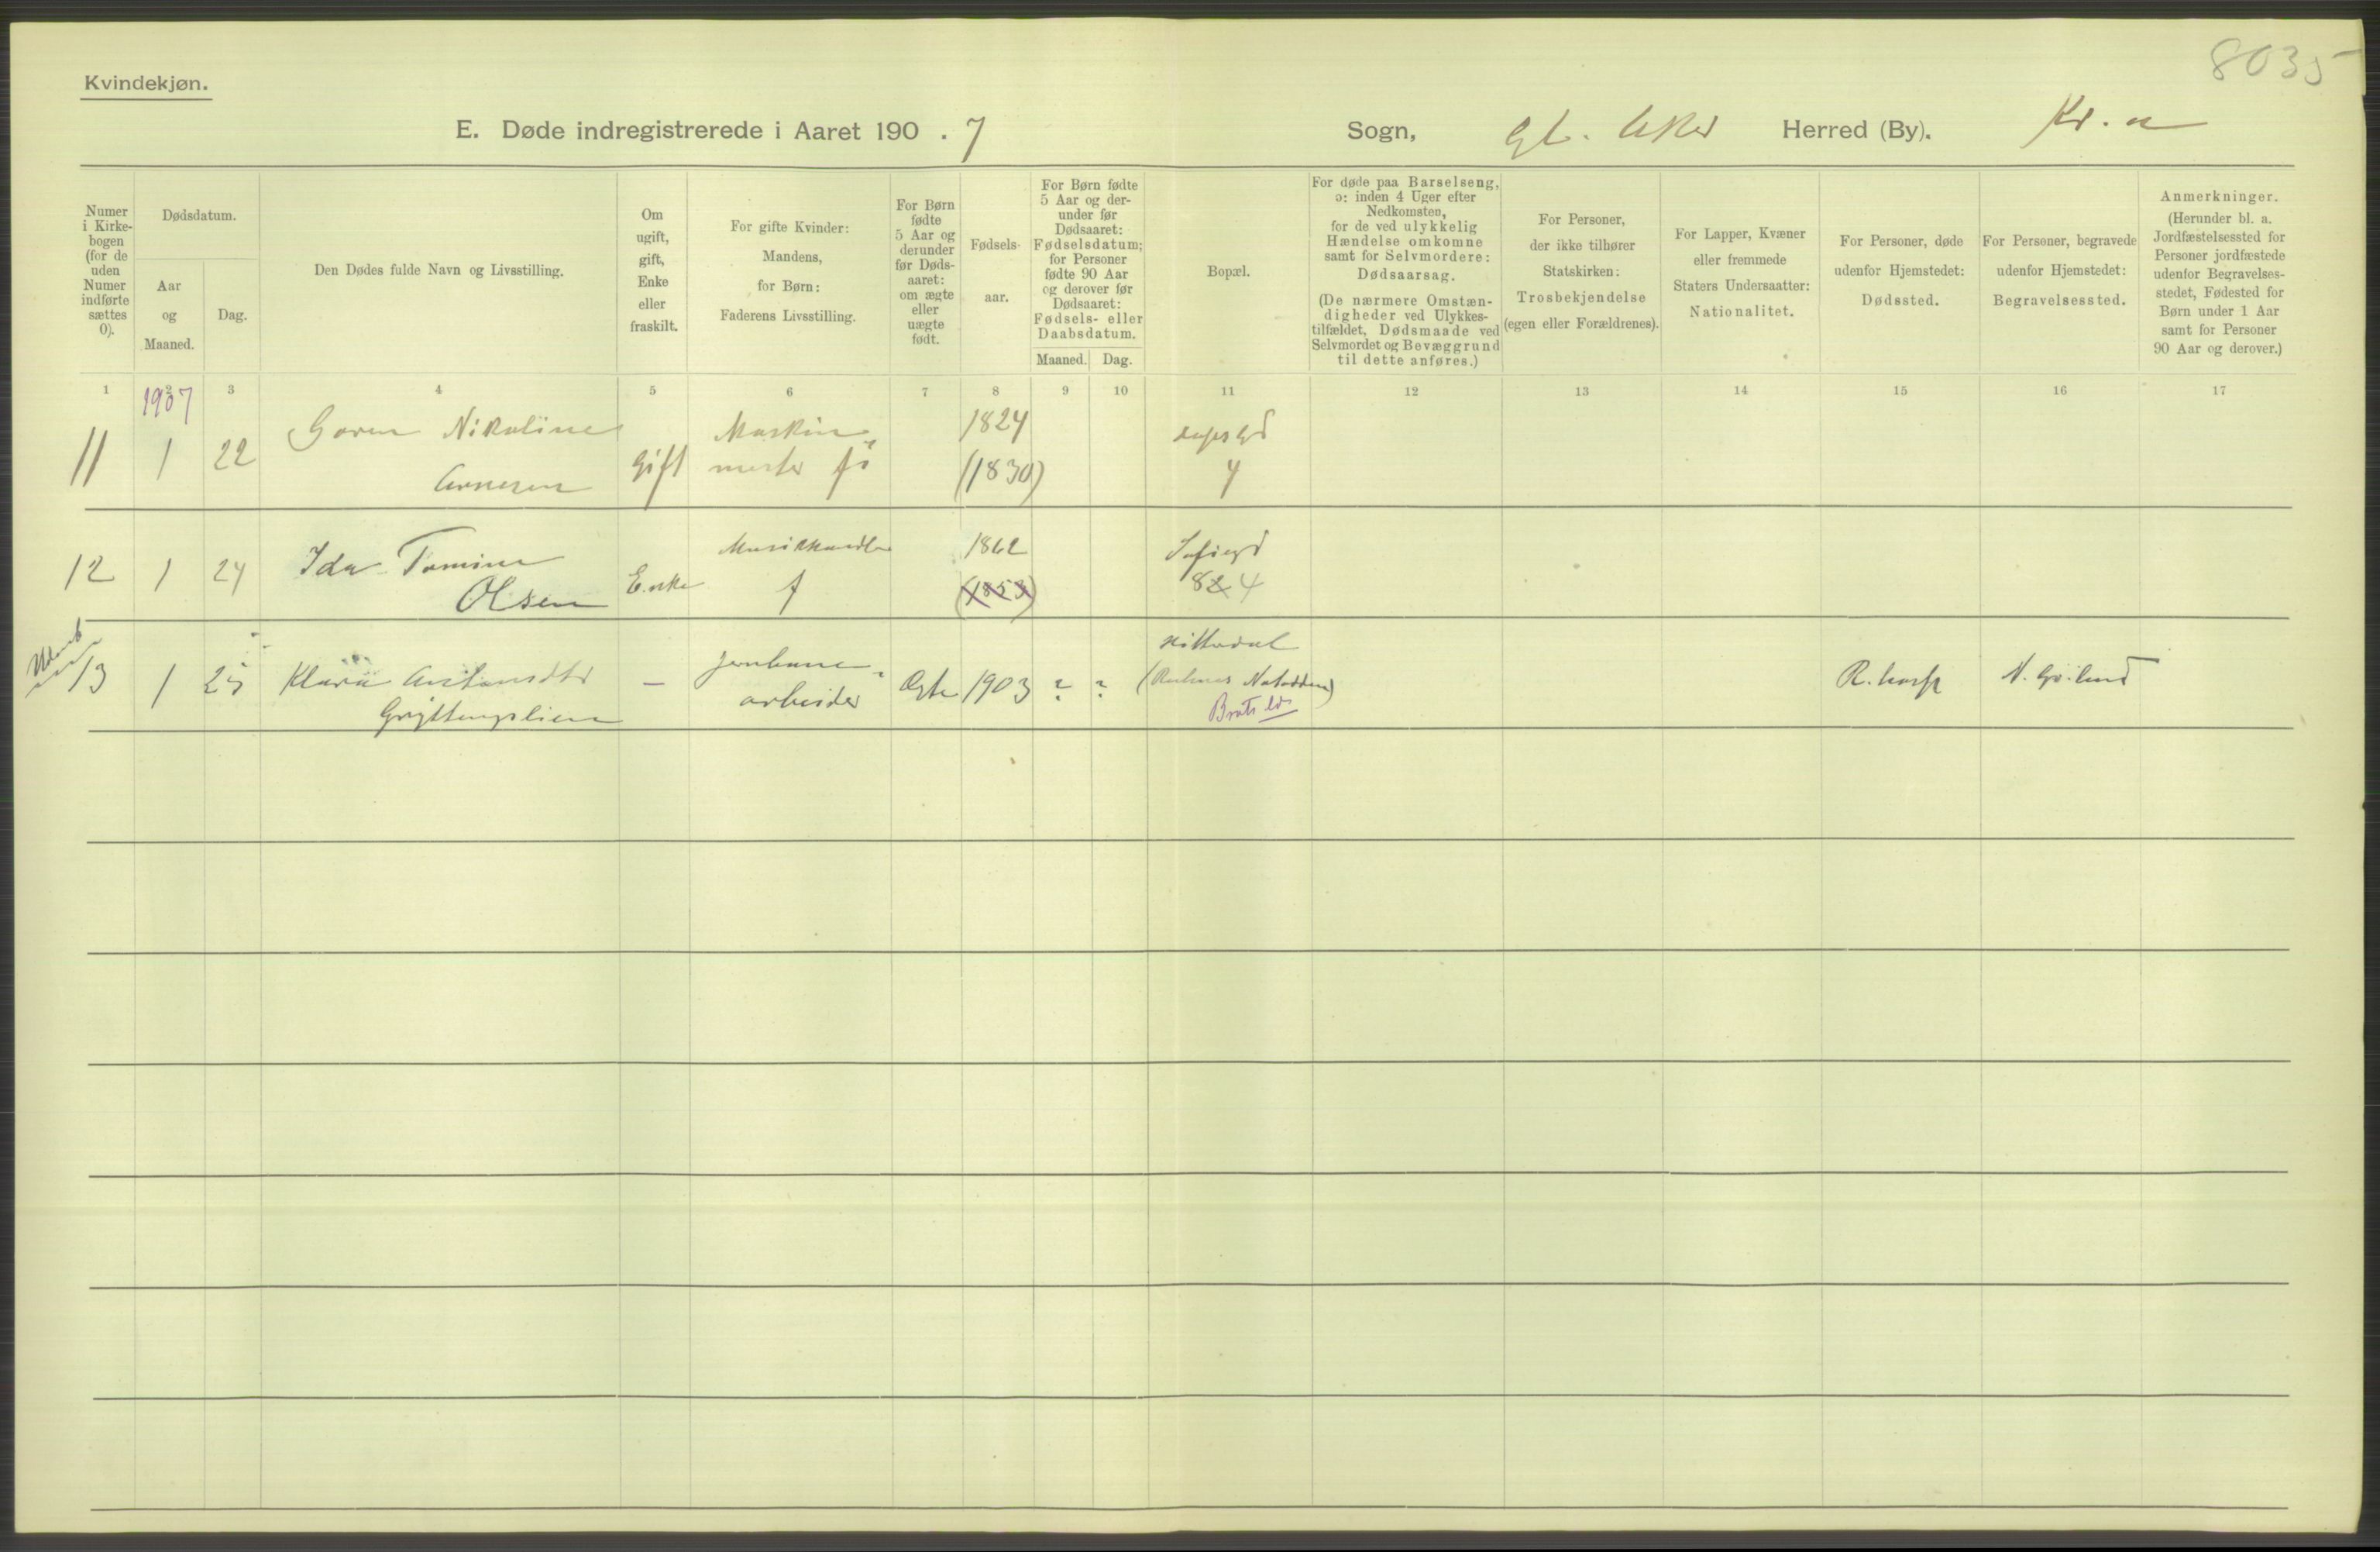 8035
Kvindekjøn.
E. Døde indregistrerede i Aaret 190 . 7 Sogn, Gl. Aker Herred (By). Kr. a
Numer
i Kirke-
bogen
(for de
uden
Numer
indførte
sættes
0).
Dødsdatum.
Aar
og
Maaned.
Dag.
Den Dødes fulde Navn og Livsstilling.
Om
ugift,
gift,
Enke
eller
fraskilt.
For gifte Kvinder:
Mandens,
for Børn:
Faderens Livsstilling.
For Børn
fødte
5 Aar og
derunder
før Døds-
aaret:
om ægte
eller
uægte
født.
Fødsels-
aar.
For Børn fødte
5 Aar og der-
under før
Dødsaaret:
Fødselsdatum;
for Personer
fødte 90 Aar
og derover før
Dødsaaret:
Fødsels- eller
Daabsdatum.
Maaned. Dag.
Bopæl.
For døde paa Barselseng,
ɔ: inden 4 Uger efter
Nedkomsten,
for de ved ulykkelig
Hændelse omkomne
samt for Selvmordere:
Dødsaarsag.
(De nærmere Omstæn-
digheder ved Ulykkes-
tilfældet, Dødsmaade ved
Selvmordet og Bevæggrund
til dette anføres.)
For Personer,
der ikke tilhører
Statskirken:
Trosbekjendelse
(egen eller Forældrenes).
For Lapper, Kvæner
eller fremmede
Staters Undersaatter:
Nationalitet.
For Personer, døde
udenfor Hjemstedet:
Dødssted.
For Personer, begravede
udenfor Hjemstedet:
Begravelsessted.
Anmerkninger.
(Herunder bl. a.
Jordfæstelsessted for
Personer jordfæstede
udenfor Begravelses-
stedet, Fødested for
Børn under 1 Aar
samt for Personer
90 Aar og derover.)
1 2 3 4 5 6 7 8 9 10 11 12 13 14 15 16 17
1907
11 1 22 Nikoline Gift Maskin- 1824
Arnesen mester (1830) 4
12 1 24 Ida Tomine Enke Musikhandler 1862 Sofiegd
Olsen f (1853) 82 4
13 1 25 Klara - Jernbane- Ægte 1903 ? ? Hitterdal R. hosp
Gryttingslien arbeider Notodden)
Bratsb